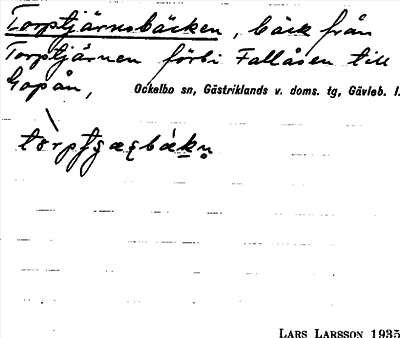 Torptjärnsbäcken, bäck från
Torptjärnen förbi Fallåsen till
Gopån, Ockelbo sn, Gästriklands v. doms. tg, Gävleb. l.
LARS LARSSON 1935